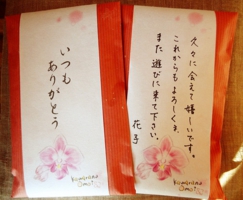 いつも
ありがとう
久々に会えて嬉しいです。
これからもよろしくネ。
また遊びに来て下さい。
花子